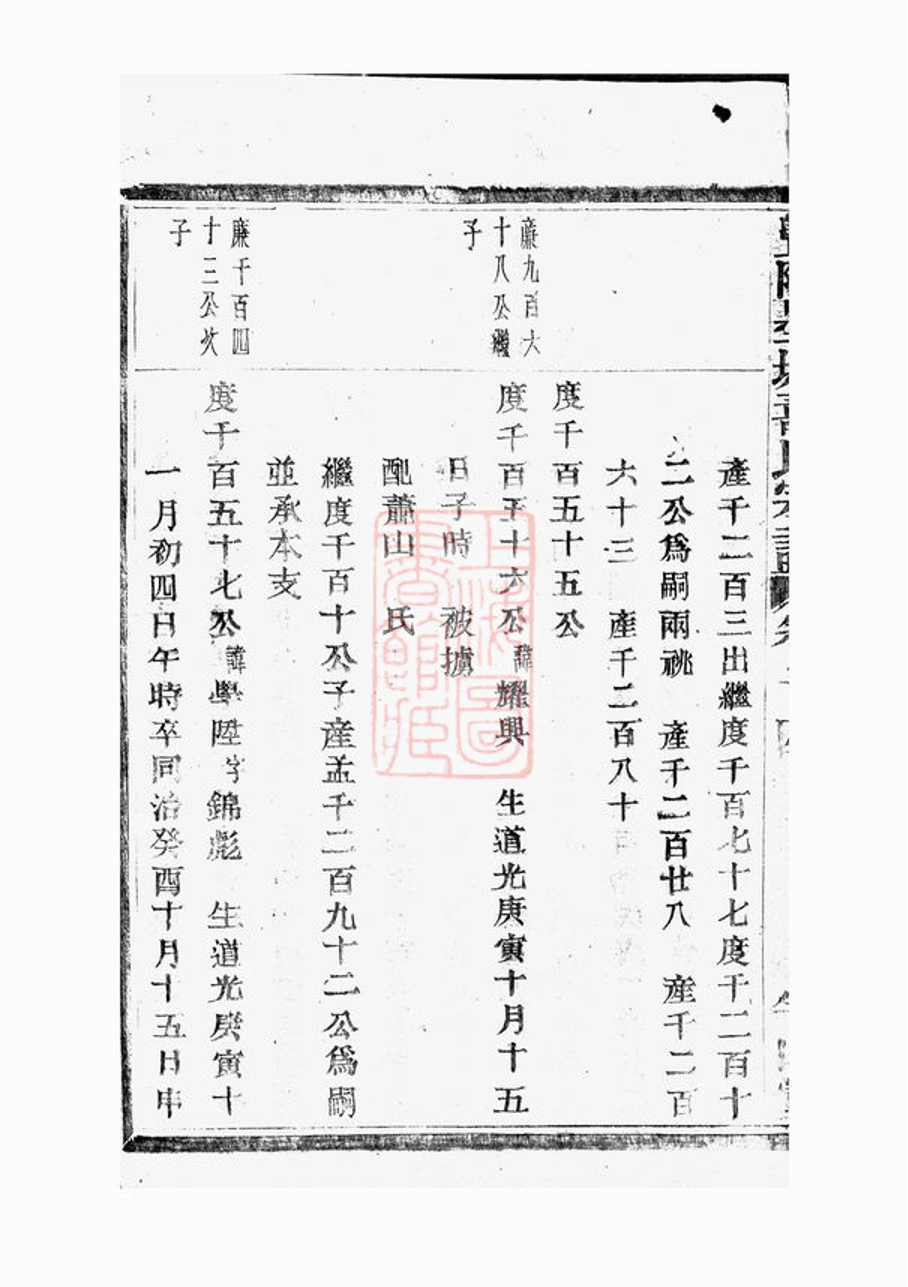 產千二百三出繼度千百七十七度千二百十
二公爲嗣兩祧　產千二百廿八　產千二百
六十三　產千二百八十
度千百五十五公
廉九百六
十八公繼
子
度千百五十六公諱耀興　生道光庚寅十月十五
日子時　被擄
配蕭山　氏
繼度千百十公子產孟千二百九十二公爲嗣
並承本支
廉千百四
十三公次
子
度千百五十七公諱學陞字錦彪　生道光庚寅十
一月初四日午時卒同治癸酉十月十五日申
上海圖
書館藏